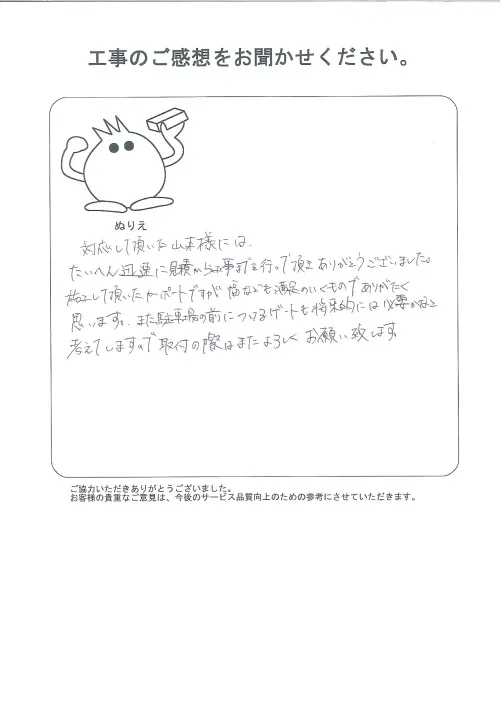 工事のご感想をお聞かせください。
ぬりえ
対応して頂いた山本様には、
たいへん迅速に見積から工事までを行って頂きありがとうございました。
施工して頂いたカーポートですが 幅なども満足のいくものでありがたく
思います。また駐車場の前につけるゲートも将来的には必要かなと
考えてしますので 取付の際はまたよろしくお願い致します
ご協力いただきありがとうございました。
お客様の貴重なご意見は、今後のサービス品質向上のための参考にさせていただきます。